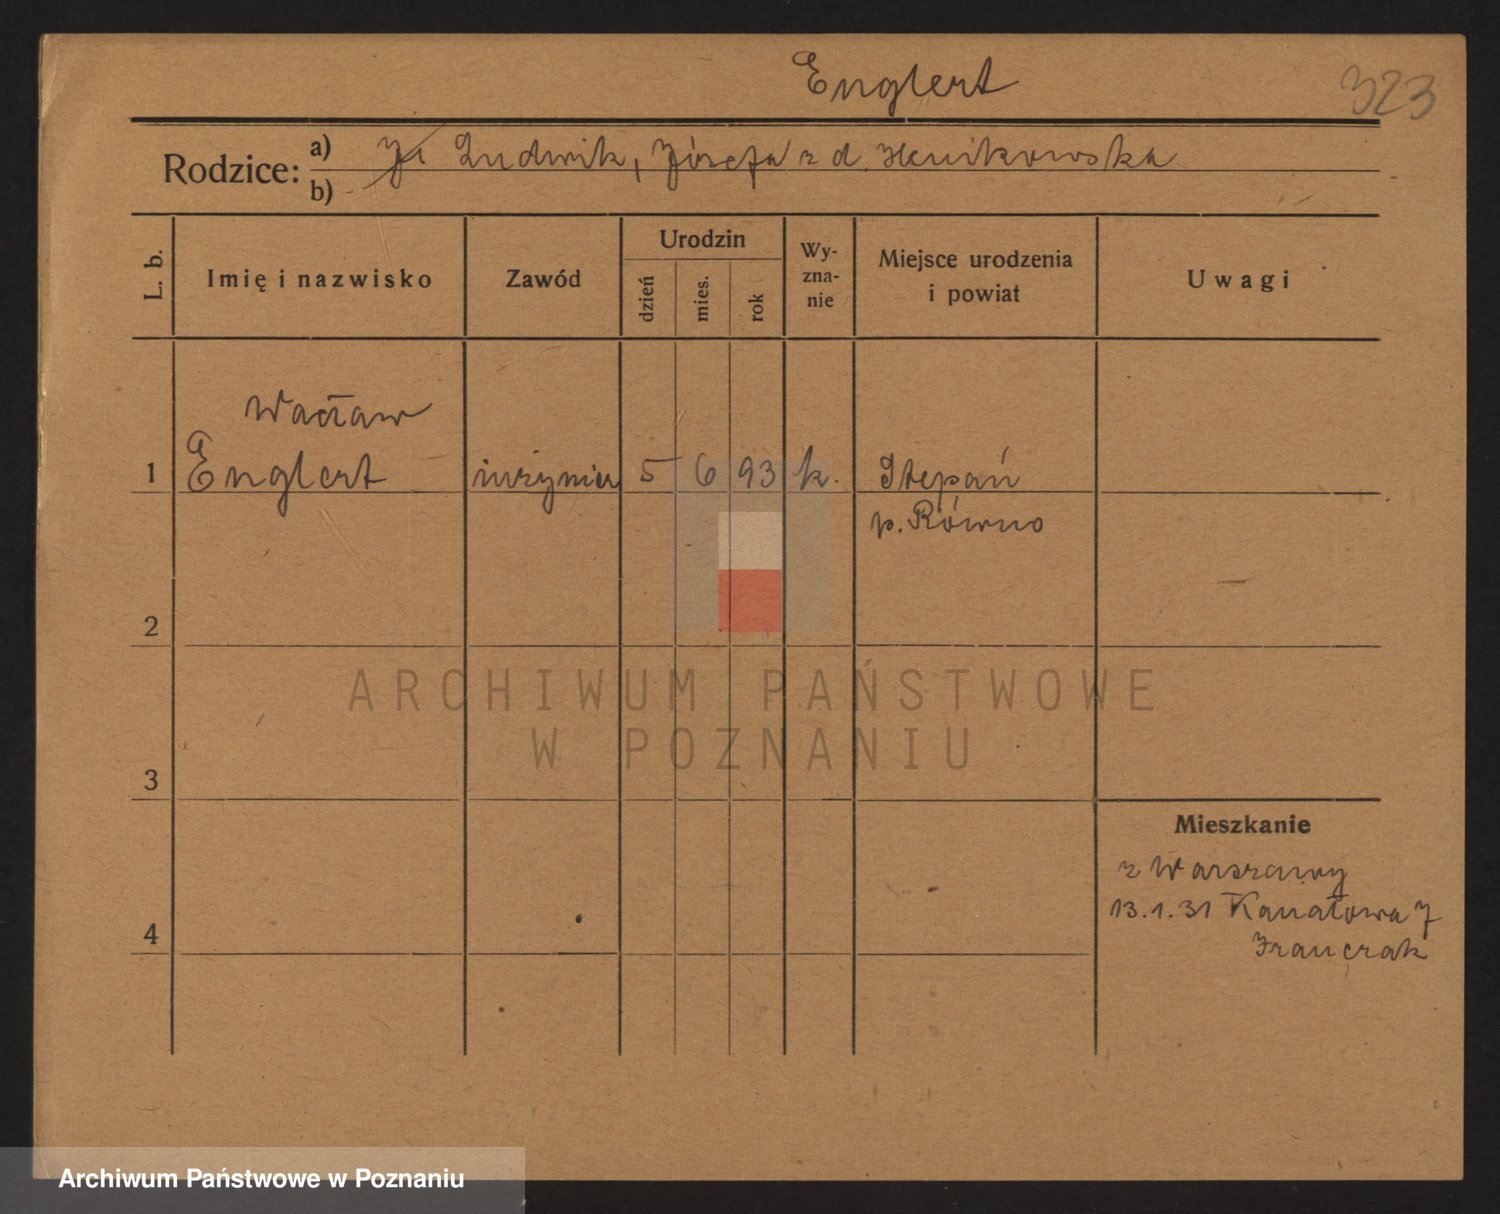 Englert 323
Rodzice: a) Ludwik, Józefa z d.
b)
L. b. Imię i nazwisko Zawód Urodzin dzień mies. rok Wy-zna-nie Miejsce urodzenia i powiat Uwagi
Wacław
1 Englert inżynier 5 6 93 k. Stepań
p. Równo
2
ARCHIWUM PAŃSTWOWE
W POZNANIU
3
Mieszkanie
z Warszawy
13.1.31 Kanałowa 7
4 Franczak
Archiwum Państwowe w Poznaniu